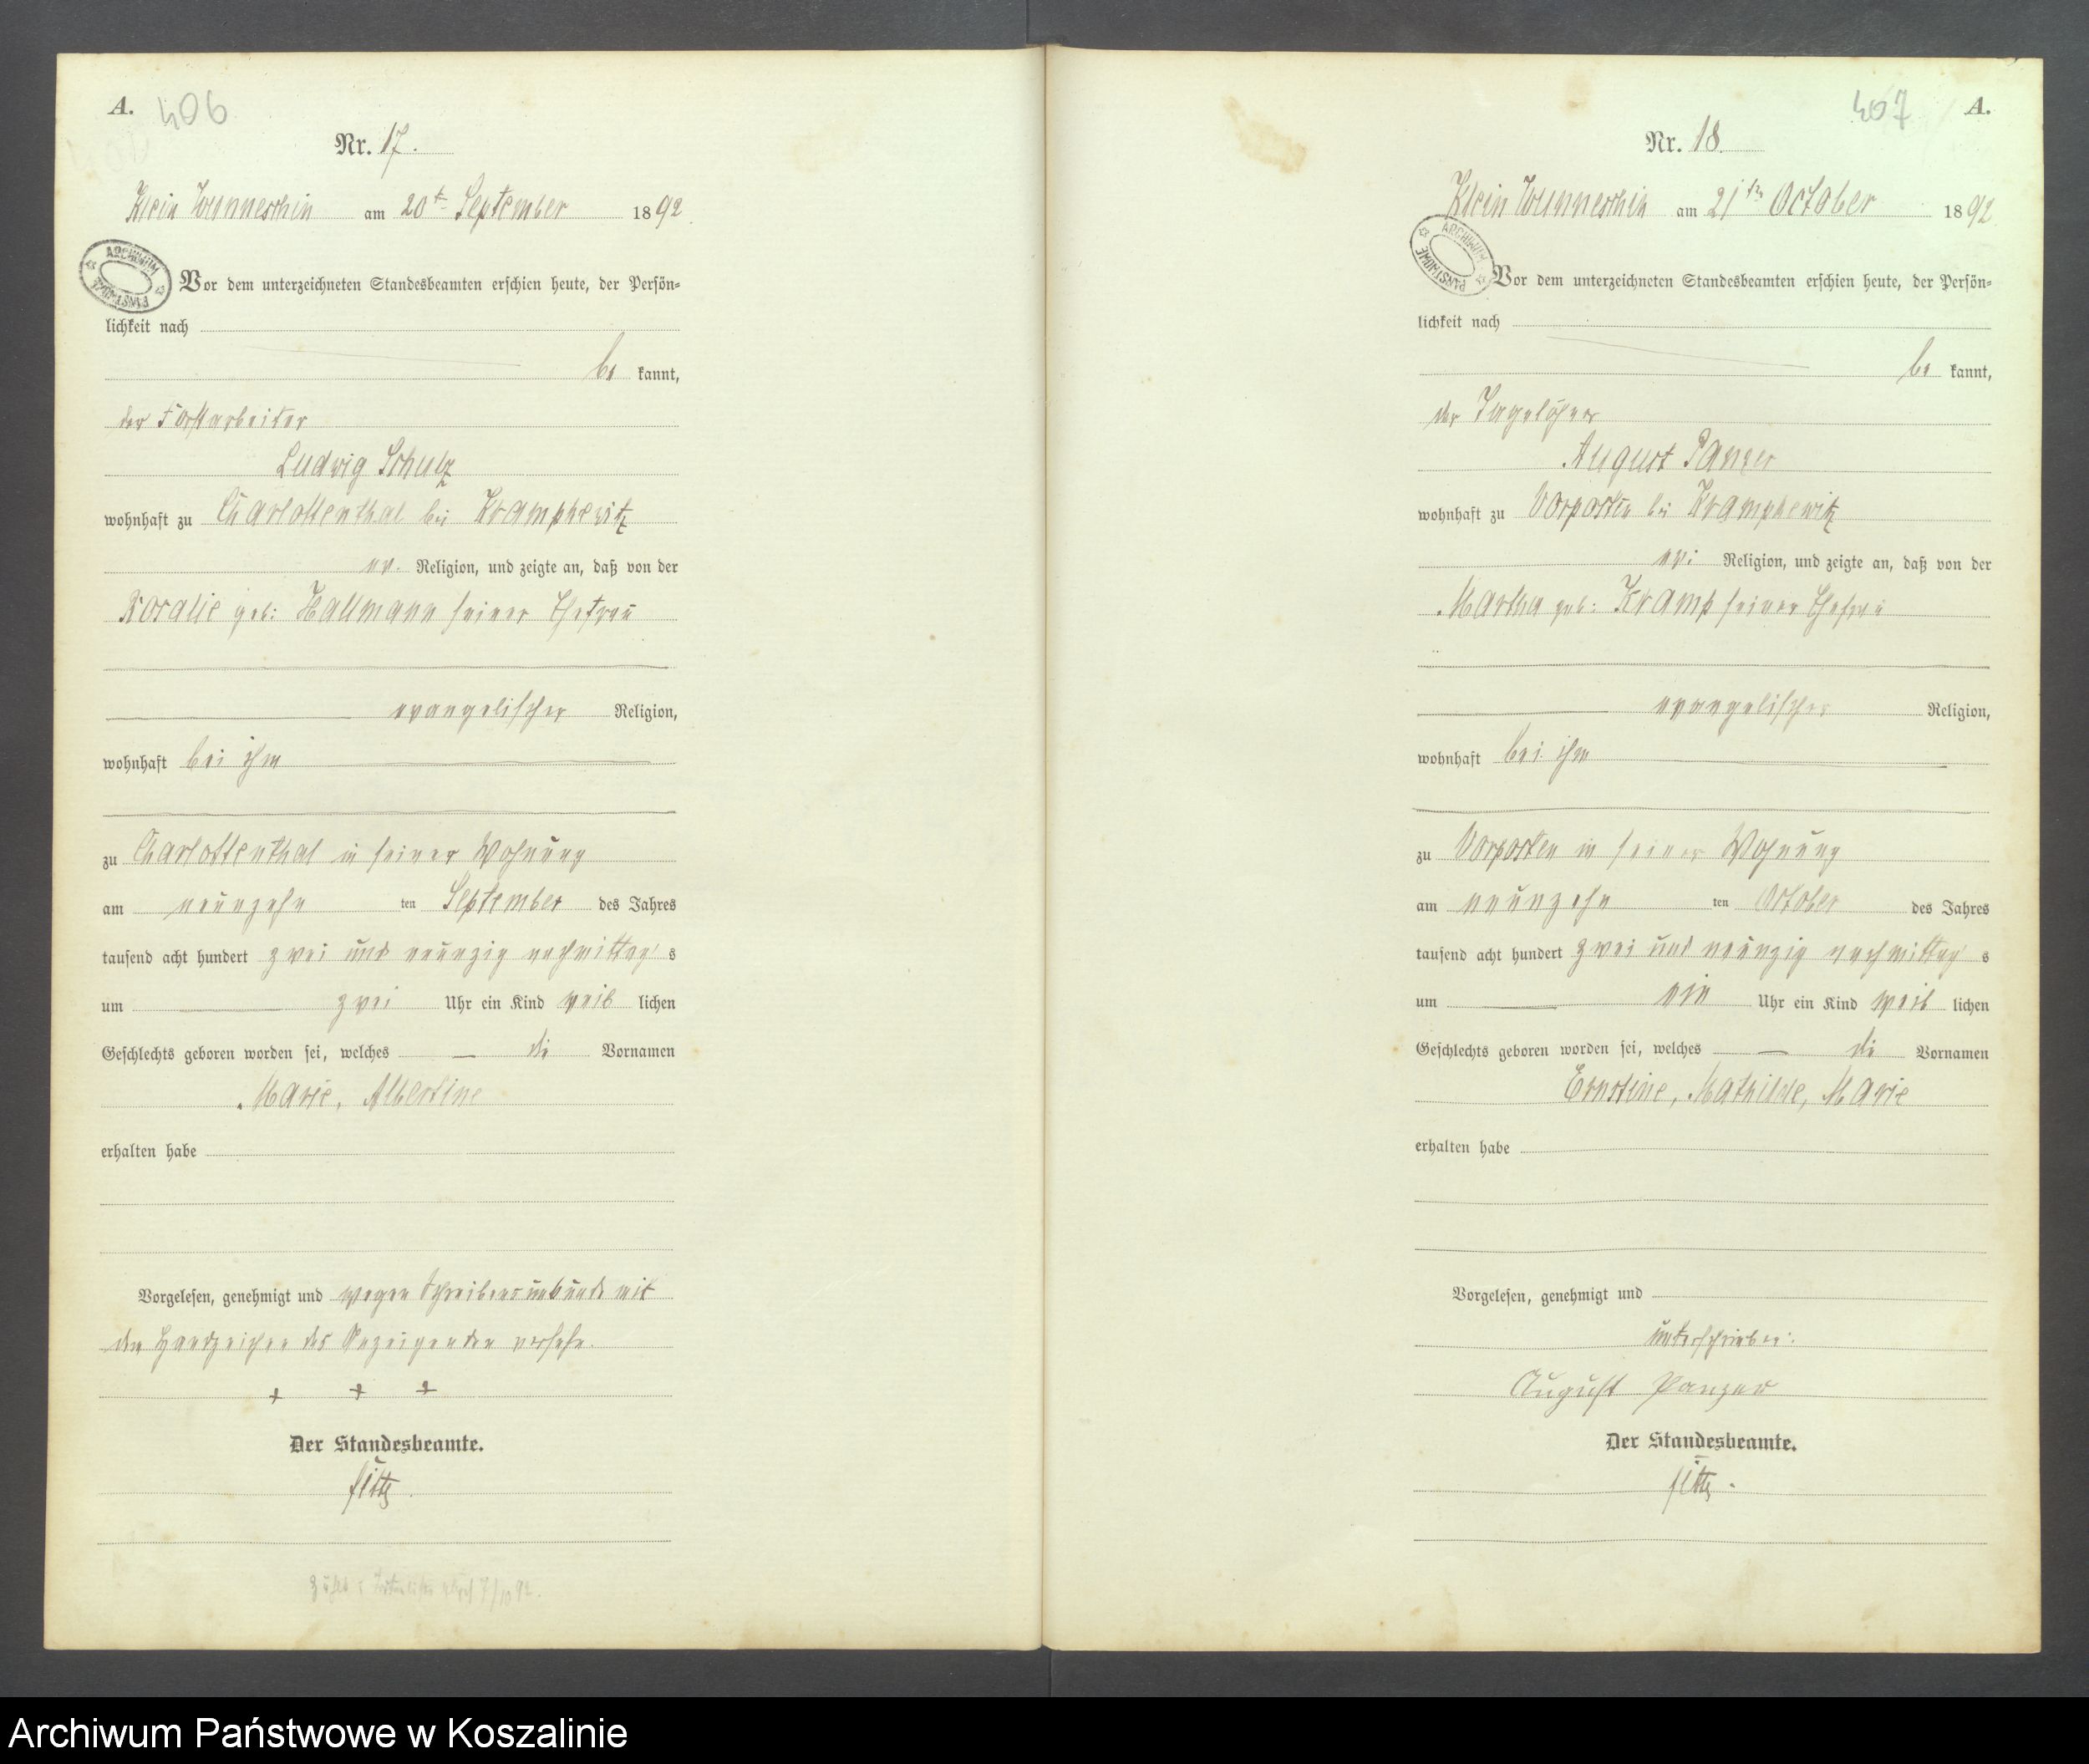 A. 406
Nr. 17.
Klein Wunneschin am 20t. September 1892.
ARCHIWUM PAŃSTWOWE
Vor dem unterzeichneten Standesbeamten erschien heute, der Persön-
lichkeit nach
be kannt,
der Forstarbeiter
Ludwig Schulz
wohnhaft zu Charlottenthal bei Kramphewitz
ev. Religion, und zeigte an, daß von der
Rosalie geb: Hallmann seiner Ehefrau
evangelischer Religion,
wohnhaft bei ihm
zu Charlottenthal in seiner Wohnung
am neunzehn ten September des Jahres
tausend acht hundert zwei und neunzig nachmittag s
um zwei Uhr ein Kind weib lichen
Geschlechts geboren worden sei, welches die Vornamen
Marie, Albertine
erhalten habe
Vorgelesen, genehmigt und wegen Schreibensunkunde mit
den Handzeichen des Anzeigenden versehn.
+ + +
Der Standesbeamte.
7/10 92.
407 A.
Nr. 18.
Klein Wunneschin am 21ten October 1892
ARCHIWUM PAŃSTWOWE
Vor dem unterzeichneten Standesbeamten erschien heute, der Persön-
lichkeit nach
be kannt,
der Tagelöhner
August Panzer
wohnhaft zu Vorposten bei Kramphewitz
ev: Religion, und zeigte an, daß von der
Martha geb: Kramp seiner Ehefrau
evangelischer Religion,
wohnhaft bei ihm
zu Vorposten in seiner Wohnung
am neunzehn ten October des Jahres
tausend acht hundert zwei und neunzig nachmittag s
um ein Uhr ein Kind weib lichen
Geschlechts geboren worden sei, welches die Vornamen
Ernstine, Mathilde, Marie
erhalten habe
Vorgelesen, genehmigt und
unterschrieben:
August Panzer
Der Standesbeamte.
Archiwum Państwowe w Koszalinie